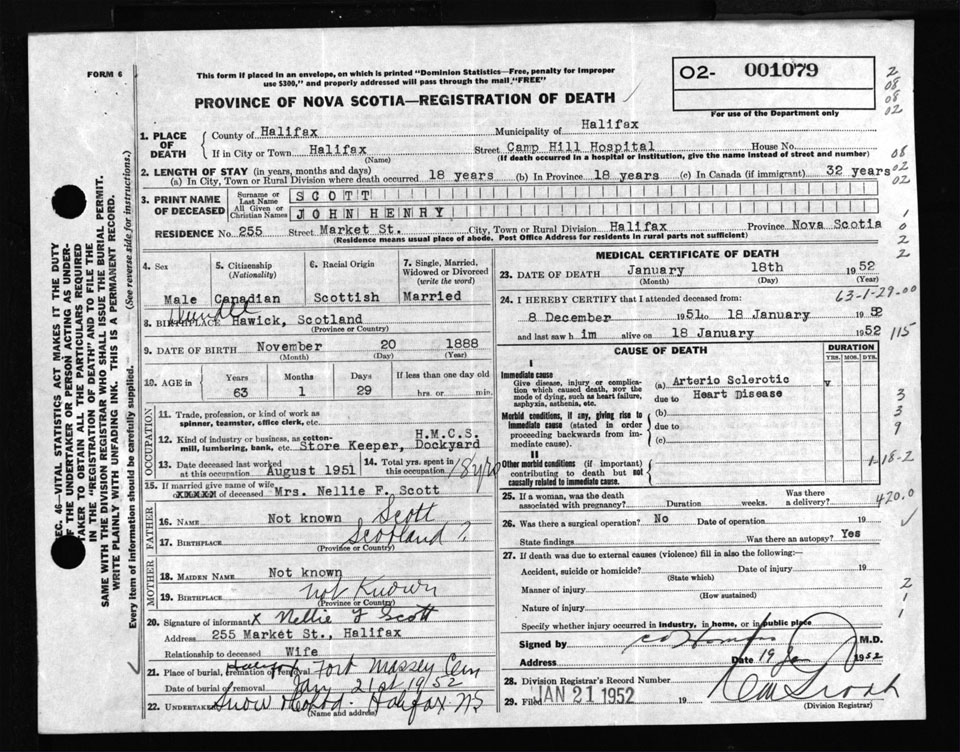 FORM 6
This form if placed in an envelope, on which is printed "Dominion Statistics—Free, penalty for improper
use $300," and properly addressed will pass through the mail "FREE"
PROVINCE OF NOVA SCOTIA—REGISTRATION OF DEATH
O2- 001079
For use of the Department only
2
08
08
02
1. PLACE OF DEATH
County of Halifax Municipality of Halifax
If in City or Town Halifax Street Camp Hill Hospital House No.
(Name) (If death occurred in a hospital or institution, give the name instead of street and number)
08
2. LENGTH OF STAY (in years, months and days)
(a) In City, Town or Rural Division where death occurred 18 years (b) In Province 18 years (c) In Canada (if immigrant) 32 years
02
02
3. PRINT NAME OF DECEASED
Surname or Last Name SCOTT
All Given or Christian Names JOHN HENRY
RESIDENCE No. 255 Street Market St. City, Town or Rural Division Halifax Province Nova Scotia
(Residence means usual place of abode. Post Office Address for residents in rural parts not sufficient)
1
0
2
2
4. Sex
Male
5. Citizenship
(Nationality)
Canadian
6. Racial Origin
Scottish
7. Single, Married,
Widowed or Divorced
(write the word)
Married
8. BIRTHPLACE Hawick, Scotland
(Province or Country)
9. DATE OF BIRTH November 20 1888
(Month) (Day) (Year)
10. AGE in
Years Months Days If less than one day old
63 1 29 hrs. or min.
OCCUPATION
11. Trade, profession, or kind of work as
spinner, teamster, office clerk, etc.
12. Kind of industry or business, as cotton-
mill, lumbering, bank, etc. Store Keeper, H.M.C.S. Dockyard
13. Date deceased last worked
at this occupation August 1951
14. Total yrs. spent in
this occupation 18 yrs
15. If married give name of wife
XXXXX of deceased Mrs. Nellie F. Scott
FATHER
16. NAME Not known Scott
17. BIRTHPLACE Scotland?
(Province or Country)
MOTHER
18. MAIDEN NAME Not known
19. BIRTHPLACE not Known
(Province or Country)
20. Signature of informant X Nellie F Scott
Address 255 Market St., Halifax
Relationship to deceased Wife
21. Place of burial, cremation or removal Halifax Fort Massey Cem
Date of burial or removal Jan 21st 1952
22. UNDERTAKER Snow & Co Ltd. Halifax NS
(Name and address)
MEDICAL CERTIFICATE OF DEATH
23. DATE OF DEATH January 18th 1952
(Month) (Day) (Year)
24. I HEREBY CERTIFY that I attended deceased from:
63-1-29-00
8 December 1951 to 18 January 1952
and last saw h im alive on 18 January 1952
115
CAUSE OF DEATH
DURATION
YRS. MOS. DYS.
I
Immediate cause
Give disease, injury or complica-
tion which caused death, NOT the
mode of dying, such as heart failure,
asphyxia, asthenia, etc.
(a) Arterio Sclerotic
due to Heart Disease
Morbid conditions, if any, giving rise to
immediate cause (stated in order
proceeding backwards from im-
mediate cause).
(b)
due to
(c)
3
3
9
II
Other morbid conditions (if important)
contributing to death but not
causally related to immediate cause.
1-18-2
25. If a woman, was the death
associated with pregnancy? Duration weeks. Was there
a delivery?
420.0
26. Was there a surgical operation? No Date of operation 19
State findings Was there an autopsy? Yes
27. If death was due to external causes (violence) fill in also the following:—
Accident, suicide or homicide? Date of injury 19
(State which)
Manner of injury
(How sustained)
Nature of injury
Specify whether injury occurred in industry, in home, or in public place
2
1
1
Signed by M.D.
Address Date 19 Jan 1952
28. Division Registrar's Record Number
29. Filed JAN 21 1952 19
(Division Registrar)
SEC. 46—VITAL STATISTICS ACT MAKES IT THE DUTY
OF THE UNDERTAKER OR PERSON ACTING AS UNDER-
TAKER TO OBTAIN ALL THE PARTICULARS REQUIRED
IN THE "REGISTRATION OF DEATH" AND TO FILE THE
SAME WITH THE DIVISION REGISTRAR WHO SHALL ISSUE THE BURIAL PERMIT.
WRITE PLAINLY WITH UNFADING INK. THIS IS A PERMANENT RECORD.
Every item of information should be carefully supplied. (See reverse side for instructions.)